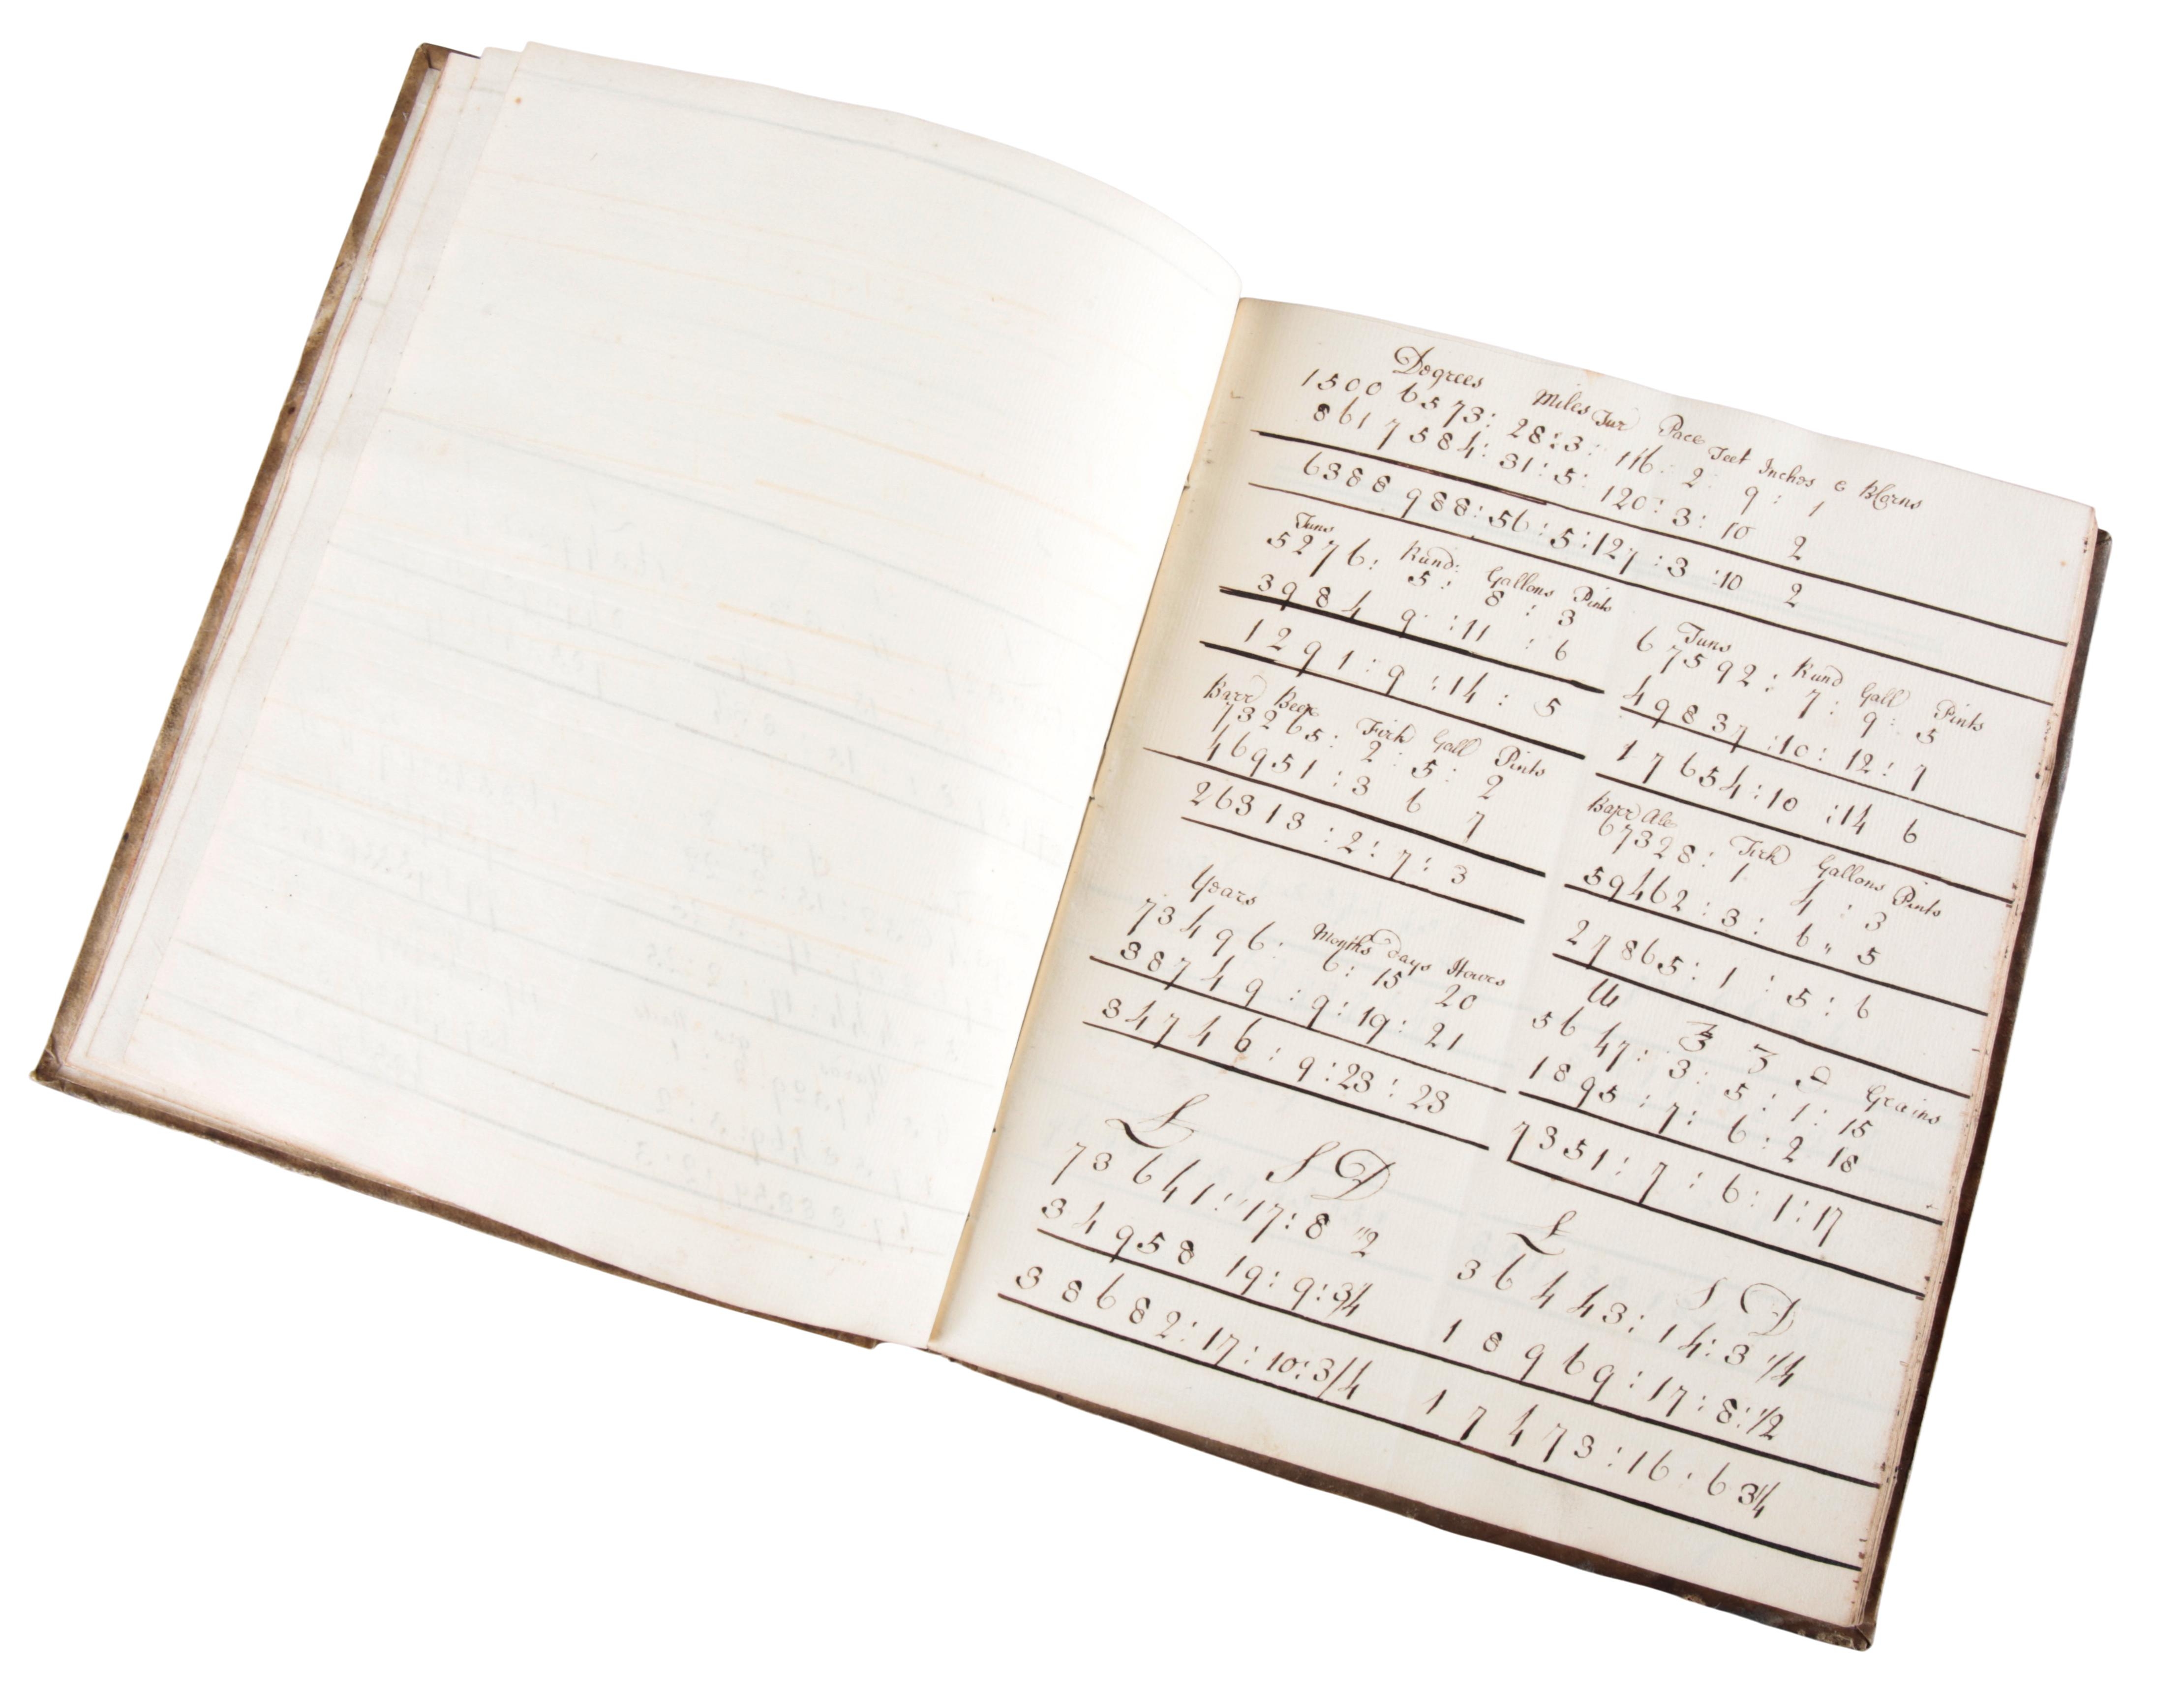 Degrees Miles Fur Pace Feet Inches & BCorns
1500 6573: 28:3: 116: 2: 9: 1
861 7584: 31:5: 120: 3: 10 2
6388 988:56:5:127:3:10 2
Tuns Rund: Gallons Pints
5276: 5: 8: 3
3984 9:11:6
1291:9:14:5
Tuns Rund Gall Pints
67592: 7: 9: 5
49837:10:12:7
17654:10:14 6
Barr Beer Firk Gall Pints
73265: 2: 5: 2
46951:3 6 7
26313:2:7:3
Barr Ale Firk Gallons Pints
67328: 1 4:3
59462:3:6" 5
27865:1:5:6
Years Months days Howrs
73496: 6: 15 20
38749:9:19:21
34746:9:23:23
℔ ℥ ʒ ℈ Grains
5647: 3: 5: 1: 15
1895:7:6:2 18
7351:7:6:1:17
L S D
73641:17:8 "2
34958 19:9:3/4
38682:17:10:3/4
L S D
36443:14:3 1/4
18969:17:8:1/2
17473:16:6 3/4